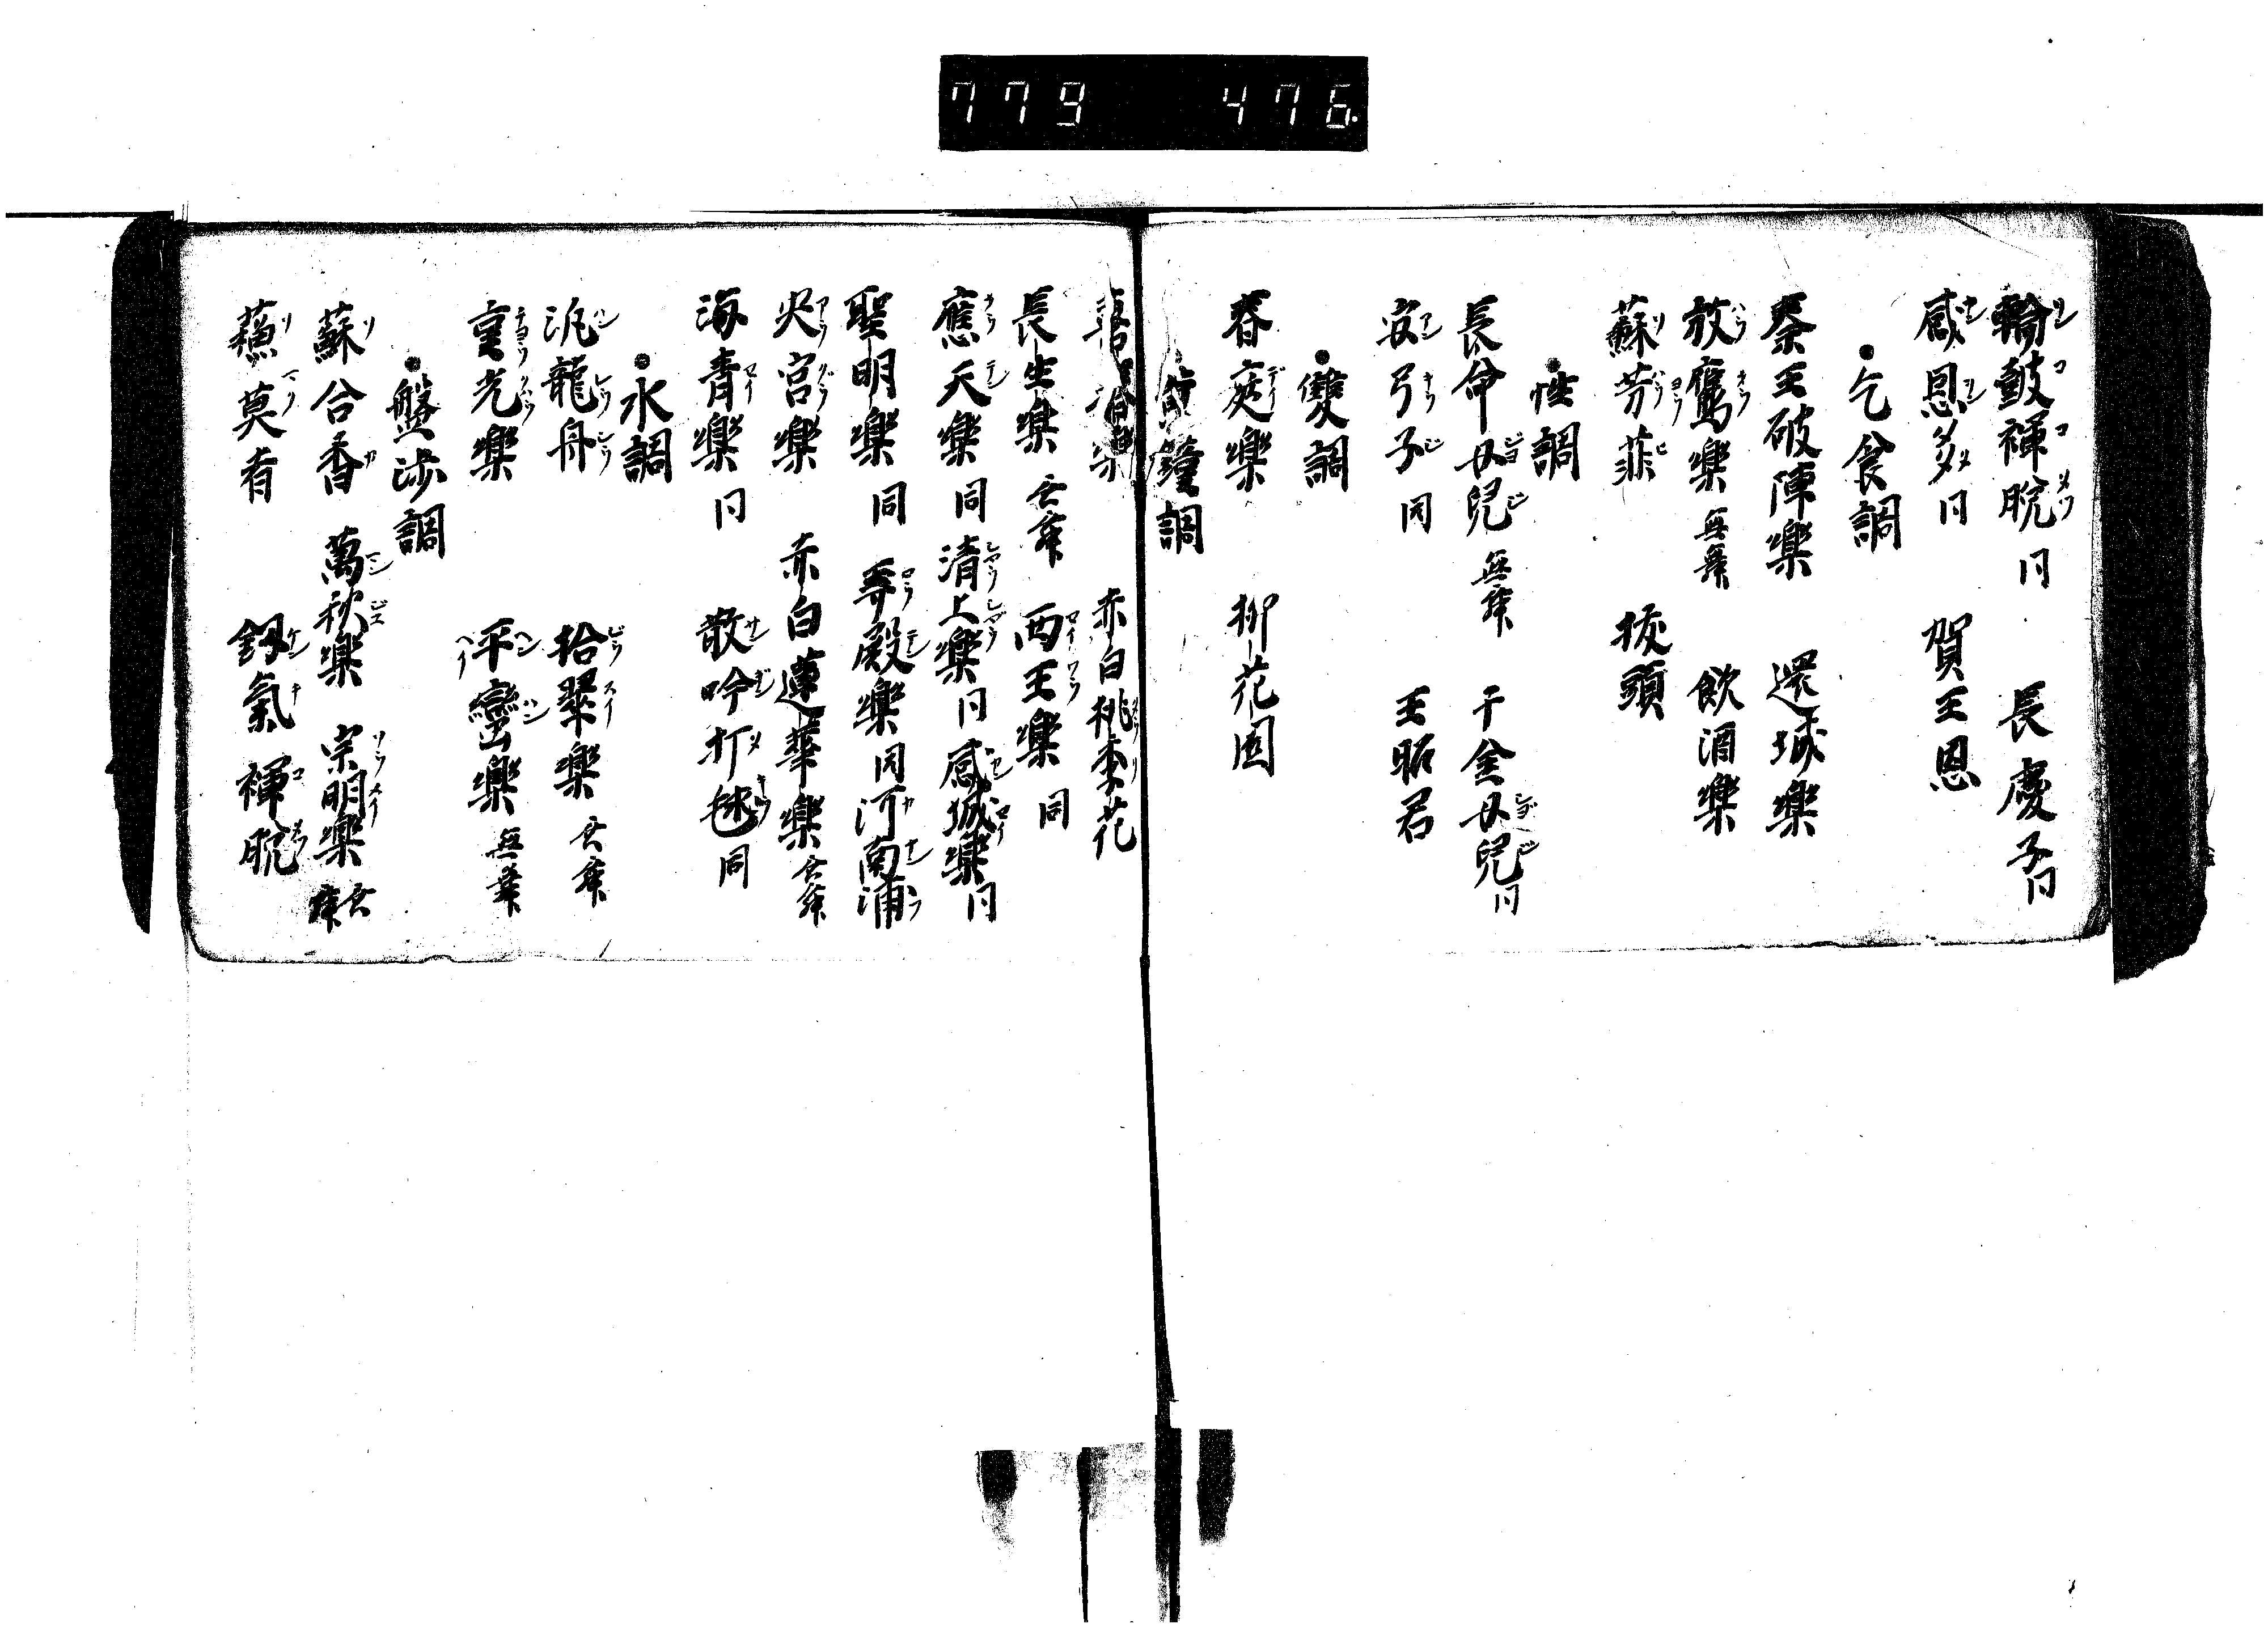 779 476
輪皷褌脱 同 長慶子 同
感恩多 同 賀王恩
乞食調
秦王破陣樂 還城樂
放鷹樂 無舞 飲酒樂
蘇芳菲 抜頭
性調
長命女兒 無舞 千金女兒 同
安弓子 同 王昭君
雙調
春庭樂 柳花園
鐘調
喜 樂 赤白桃李花
長生樂 无舞 西王樂 同
應天樂 同 清上樂 同 感城樂 同
聖明樂 同 弄殿樂 同 河南浦
央宮樂 赤白蓮華樂 无舞
海青樂 同 散吟打毬 同
水調
汎龍舟 拾翠樂 无舞
重光樂 平蠻樂 無舞
盤渉調
蘇合香 萬秋樂 宗明樂 无舞
蘓莫者 釼氣褌脱